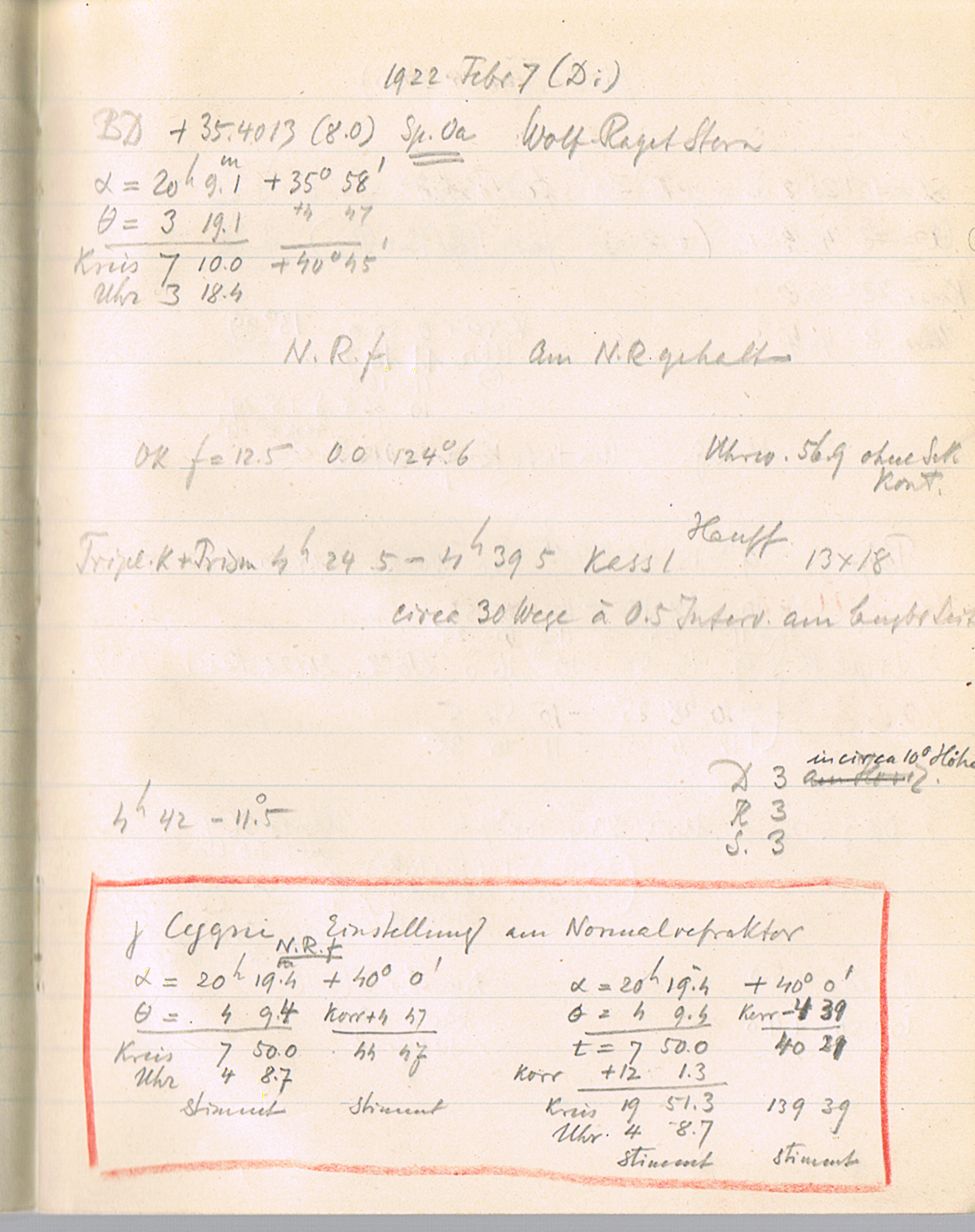 1922 Febr 7 (Di)
BD +35.4013 (8.0) Sp. Oa Wolf-Rayet Stern
α = 20h 9.1m +35° 58'
θ = 3 19.1 +4 47
Kreis 7 10.0 +40° 45'
Uhr 3 18.4
N. R. f am N.R. gehalt
OK f = 12.5 0.0 124°.6 Uhrw. 56.9 ohne Sek
Kont.
Tripl. K + Prism 4h 24 5 – 4h 39 5 Kass 1 Hauff 13x18
circa 30 Wege à 0.5 Interv. am
in circa 10° Höhe
D 3
4h 42 – 11°.5 R 3
S. 3
γ Cygni Einstellung am Normalrefraktor
N.R.f
α = 20h 19.4m + 40° 0' α = 20h 19.4m + 40° 0'
θ = 4 9.4 Korr +4 47 θ = 4 9.4 Korr –4 39
Kreis 7 50.0 44 47 t = 7 50.0 40 21
Uhr 4 8.7 Korr +12 1.3
stimmt stimmt Kreis 19 51.3 139 39
Uhr. 4 8.7
stimmt stimmt